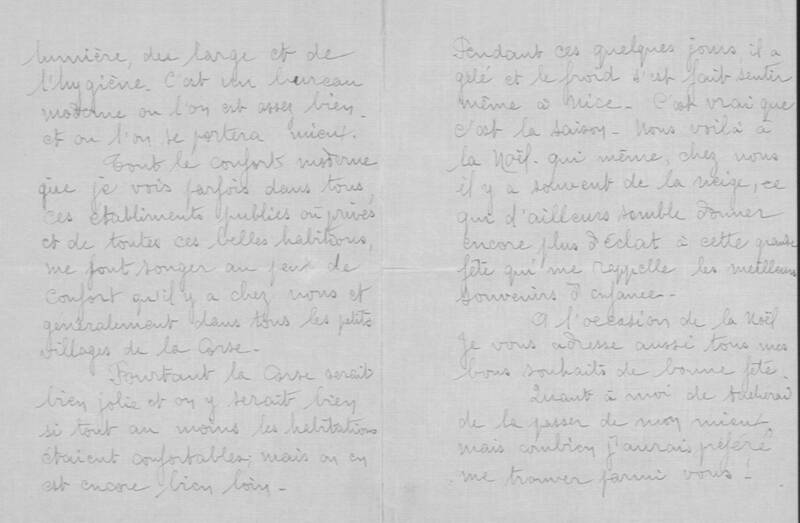 lumière, du large et de
l'hygiène. C'est un bureau
moderne ou l'on est assez bien
et ou l'on se portera mieux.
Tout le confort moderne
que je vois parfois dans tous
ces établiments publics où privés
et de toutes ces belles habitions,
me font songer au peux de
confort qu'il y a chez nous et
généralement dans tous les petits
villages de la Corse-
Pourtant la Corse serait
bien jolie et on y serait bien
si tout au moins les habitations
étaient confortables; mais on en
est encore bien loin-
Pendant ces quelques jours, il a
gélé et le froid s'est fait sentir
même à Nice- C'est vrai que
c'est la saison- Nous voilà à
la Noël. qui même, chez nous
il y a souvent de la neige, ce
qui d'ailleurs semble donner
encore plus d'éclat à cette grande
fête qui me rappelle les meilleurs
souvenirs d'enfance-
A l'occasion de la Noël
Je vous adresse aussi tous mes
bons souhaits de bonne fête.
Quant à moi je tacherai
de la passer de mon mieux,
mais combien j'aurais préféré
me trouver parmi vous-